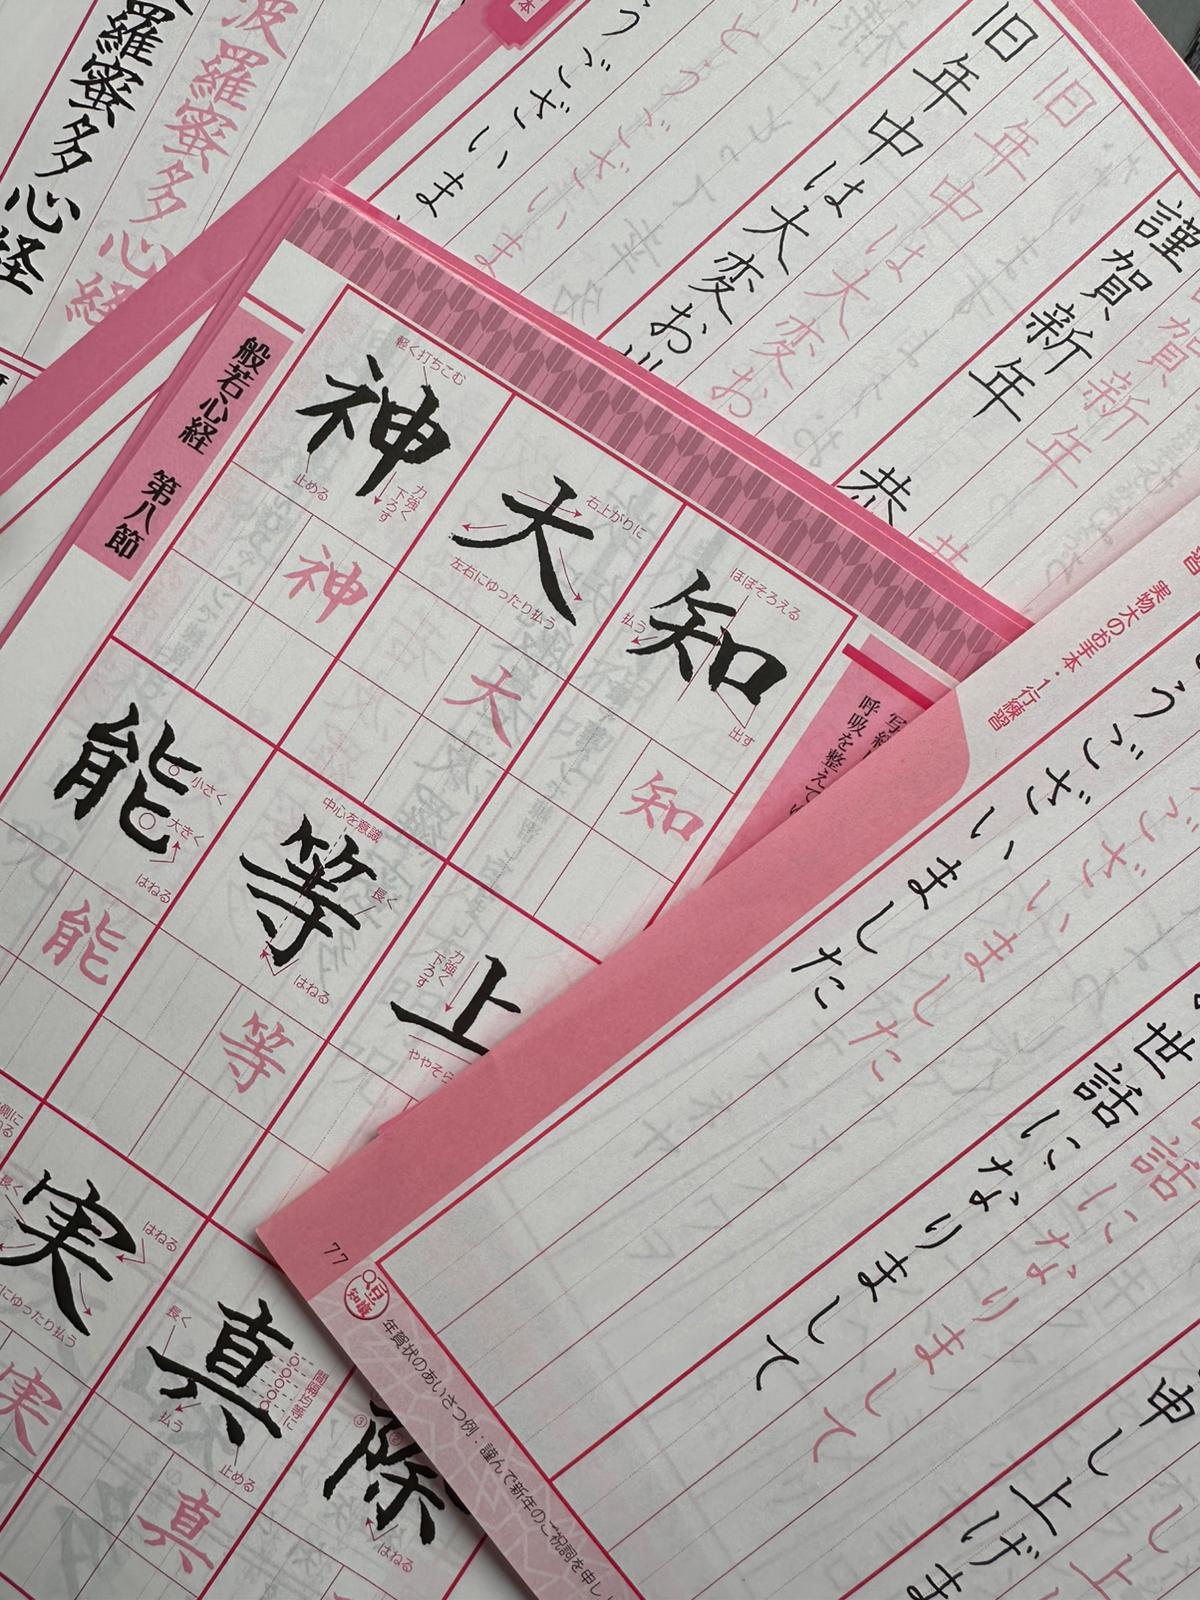 波羅蜜多心経
羅蜜多心経
うございま
とうございま
旧年中は大変お
旧年中は大変お
謹賀新年
賀新年
恭
恭
般若心経 第八節
知
ほぼそろえる
払う
出す
知
大
右上がりに
左右にゆったり払う
大
神
軽く打ちこむ
止める
力強く下ろす
神
上
力強く下ろす
ややそら
等
中心を意識
長く
はねる
等
能
小さく
大きく
はねる
能
除
はねる
真
長く
間隔均等に
払う
止める
真
実
長く
はねる
にゆったり払う
実
呼吸を整えて
実物大のお手本・1行練習
うございました
ございました
世話になりまして
話になりまして
申し上げま
し上
77
豆知識
年賀状のあいさつ例：謹んで新年のご祝詞を申し